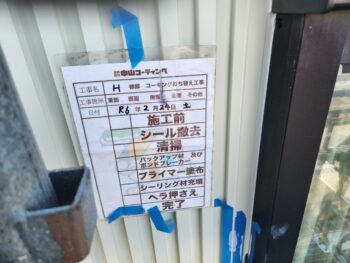 株式会社 中山コーティング
工事名 H 様邸 コーキング打ち替え工事
工事箇所 東面 西面 南面 北面 その他
日付 R6年2月24日 土
施工前
シール撤去
清掃
バックアップ材 及び
ボンドブレーカー
プライマー塗布
シーリング材充填
ヘラ押さえ
完了